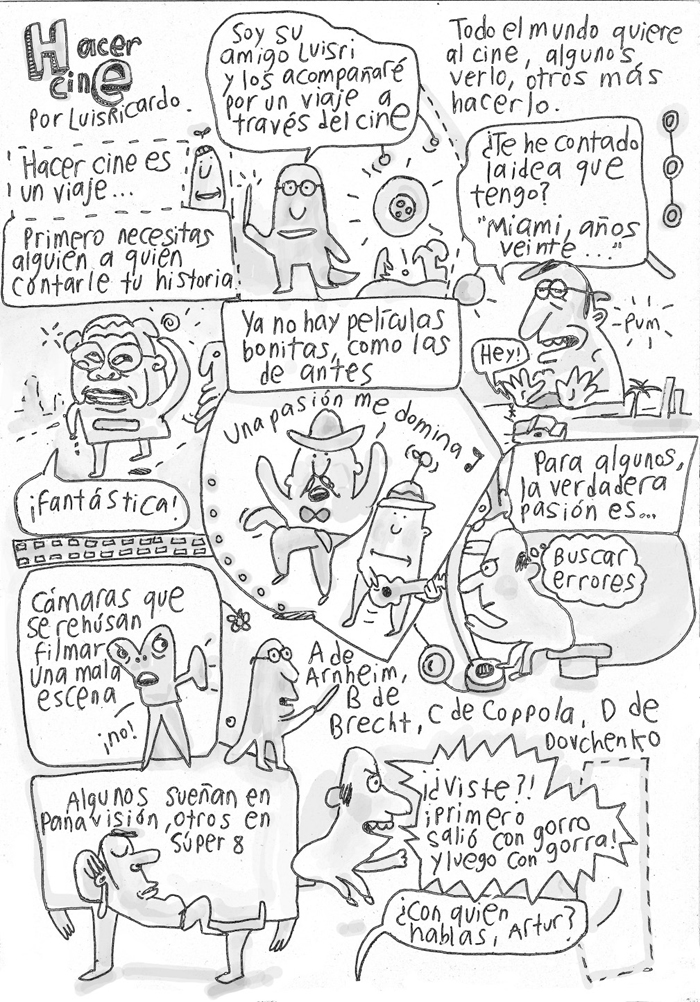 Hacer
cinE
por LuisRicardo.
Soy su
amigo Luisri
y los acompañaré
por un viaje a
través del cine
Todo el mundo quiere
al cine, algunos
verlo, otros más
hacerlo.
Hacer cine es
un viaje...
Primero necesitas
alguien a quien
contarle tu historia
¿Te he contado
la idea que
tengo?
"Miami, años
veinte..."
Hey!
PUM
¡Fantástica!
Ya no hay películas
bonitas, como las
de antes
Una pasión me domina
Para algunos,
la verdadera
pasión es...
Buscar
errores
Cámaras que
se rehúsan
filmar
una mala
escena
¡no!
A de
Arnheim,
B de
Brecht, C de Coppola, D de
Dovchenko
Algunos sueñan en
panavisión, otros en
Súper 8
¡¿Viste?!
¡Primero
salió con gorro
y luego con gorra!
¿Con quien
hablas, Artur?